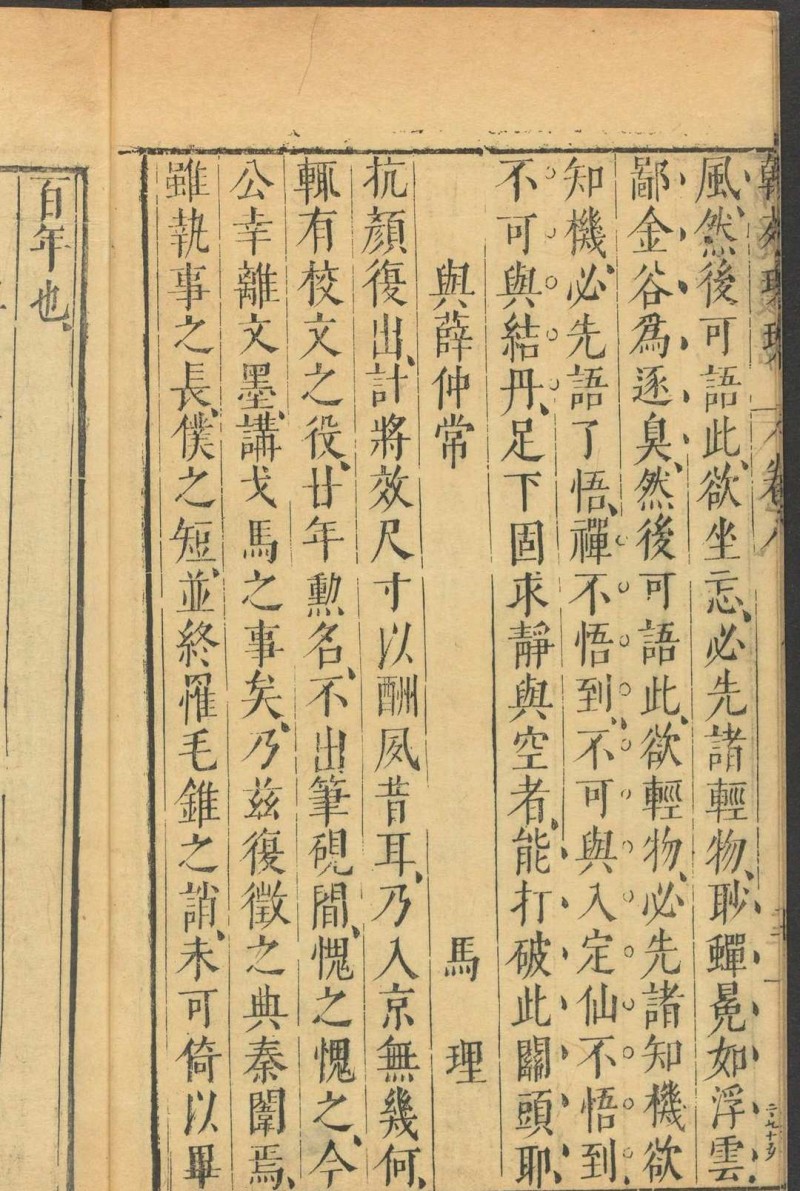 風、然後可語此、欲坐忘、必先諸輕物、眇蟬冕如浮雲、
鄙金谷爲逐臭、然後可語此、欲輕物、必先諸知機欲
知機、必先語了悟、禪不悟到、不可與入定仙不悟到、
不可與結丹、足下固求靜與空者、能打破此關頭耶、
與薛仲常 馬理
抗顏復出、計將效尺寸以酬夙昔耳、乃入京無幾何、
輒有校文之役、廿年勲名、不出筆硯間、愧之愧之、今
公幸離文墨、講戈馬之事矣、乃茲復徵之典秦闈焉、
雖執事之長、僕之短、並終罹毛錐之誚、未可倚以畢
百年也、